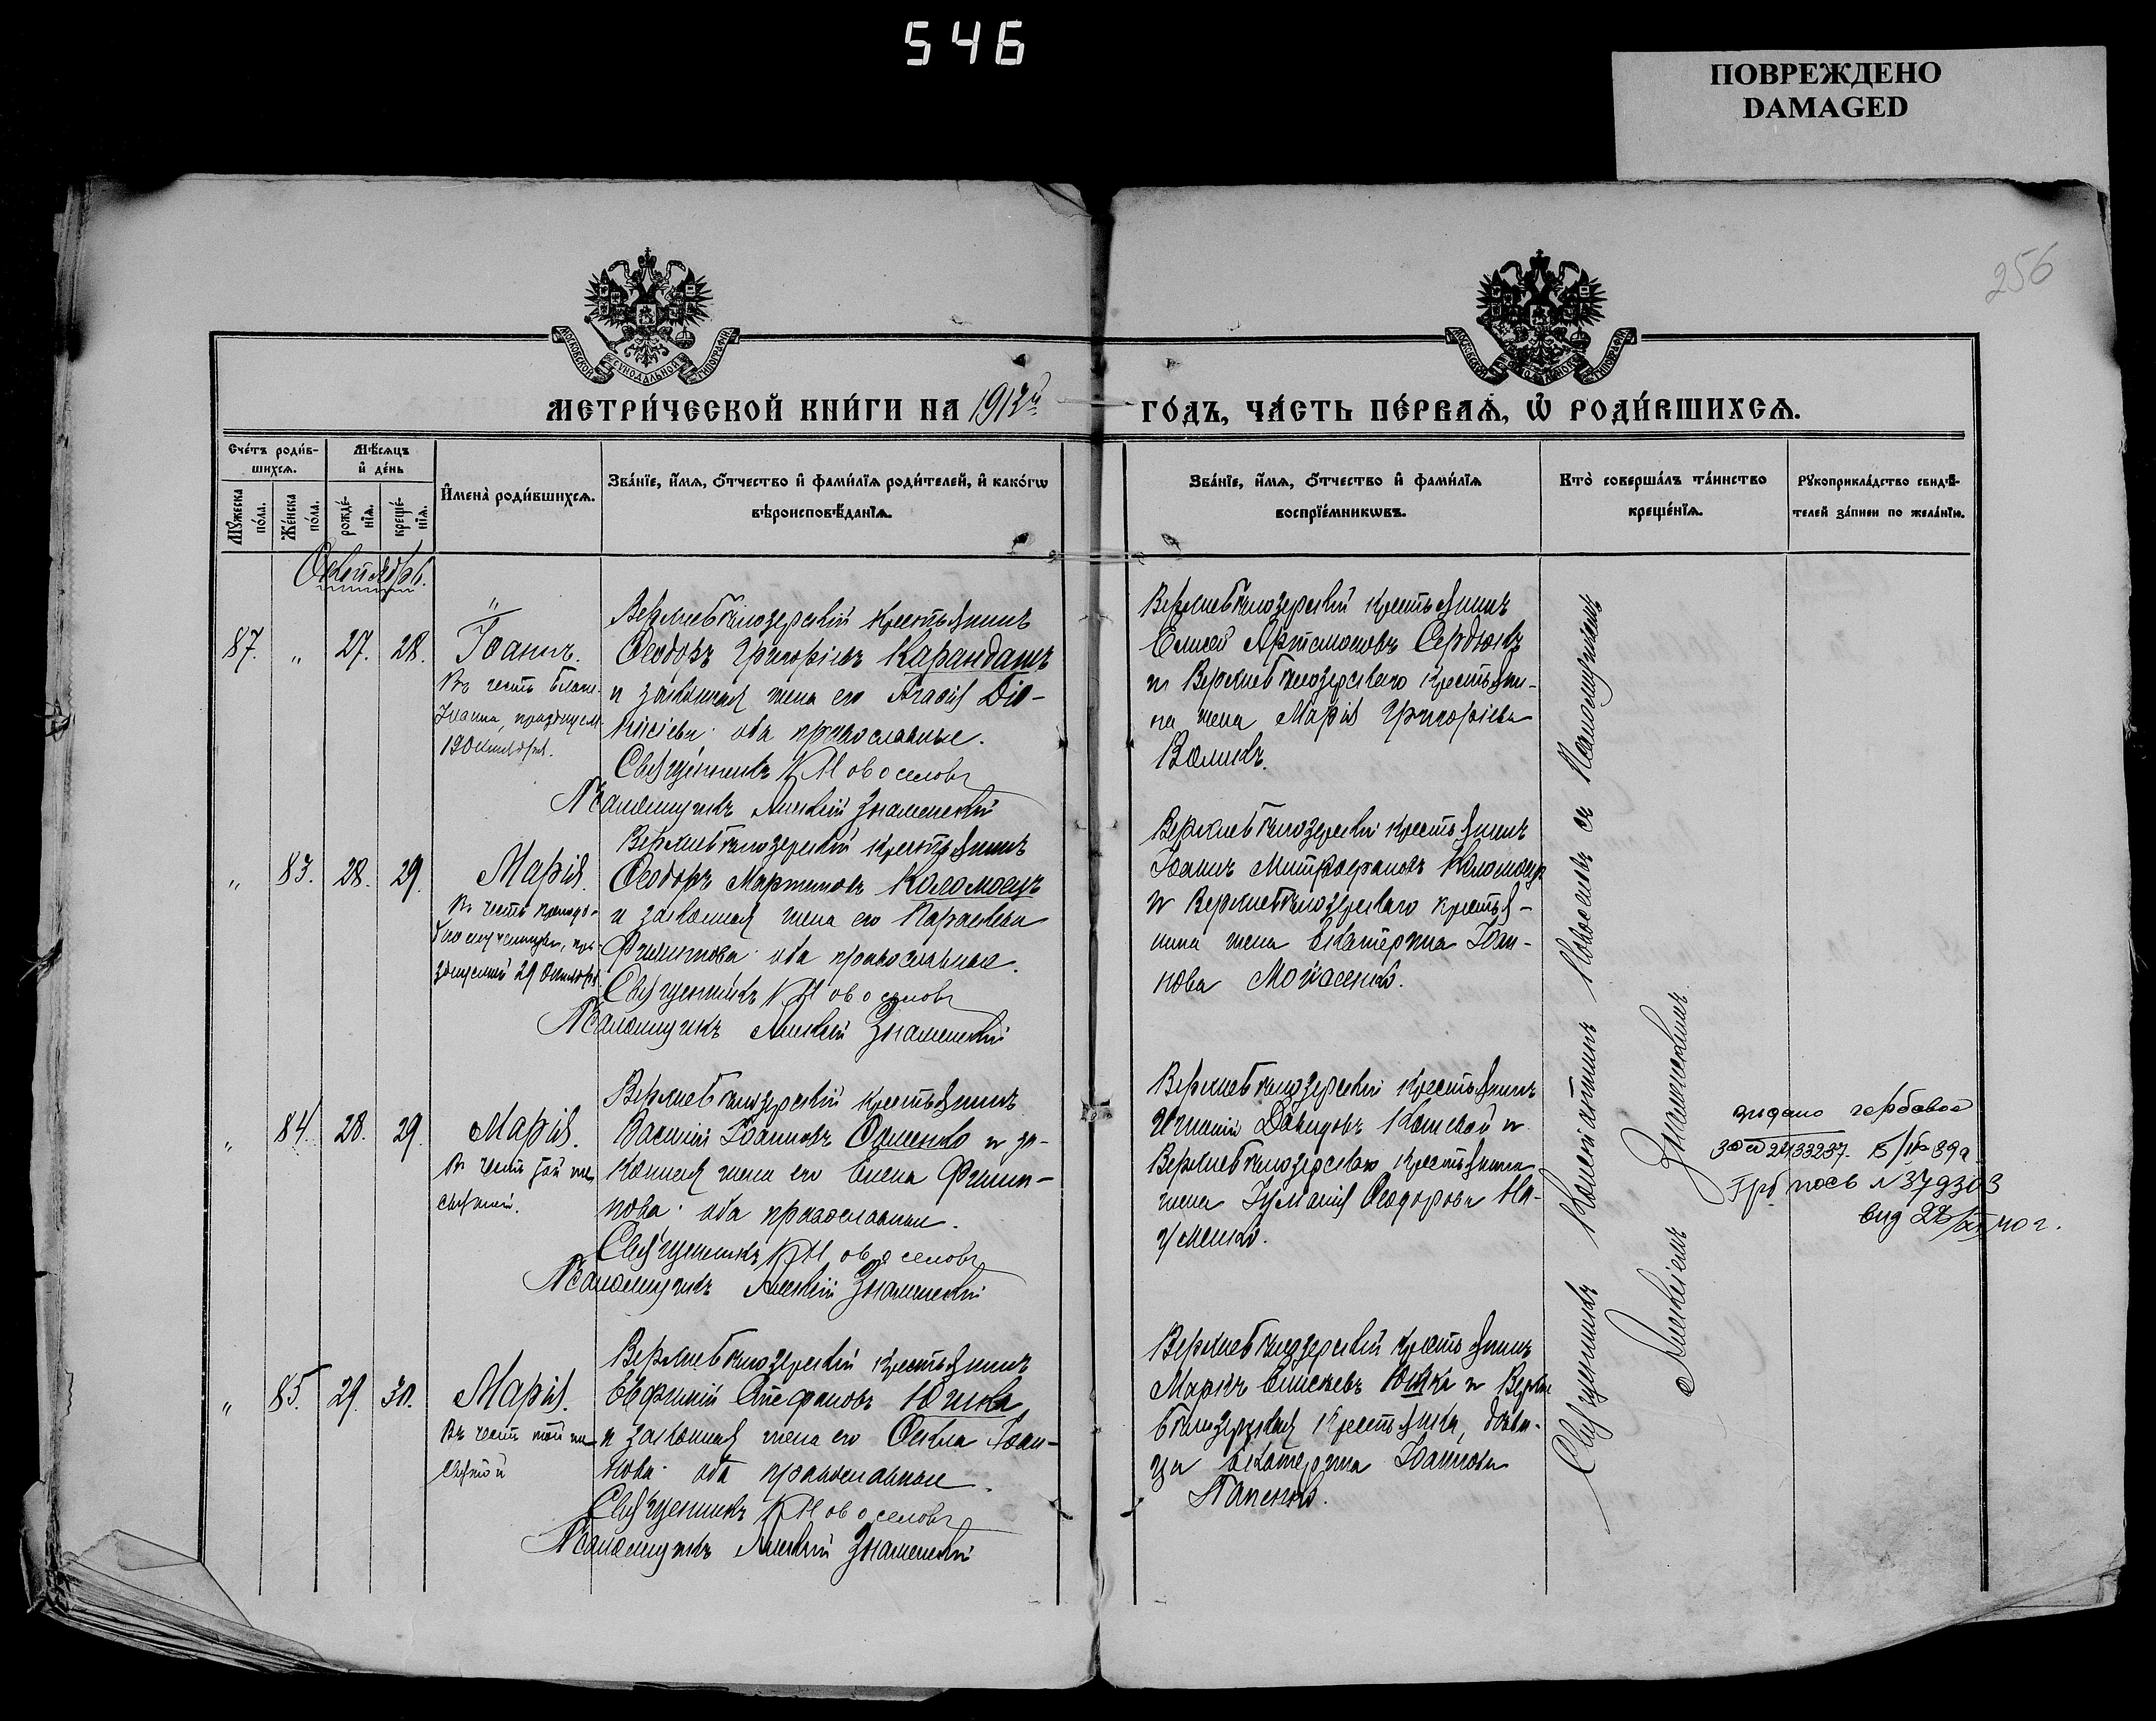 546
ПОВРЕЖДЕНО
DAMAGED
256
МОСКОВСКОЙ СѴНОДАЛЬНОЙ ТИПОГРАФІИ
МОСКОВСКОЙ СѴНОДАЛЬНОЙ ТИПОГРАФІИ
МЕТРИ́ЧЕСКОЙ КНИ́ГИ НА 1912й
ГО́ДЪ, ЧА́СТЬ ПЕ́РВАѦ, Ѡ҆ РОДИ́ВШИХСѦ.
Сче́тъ роди́в-
шихсѧ.
Мѣ́сѧцъ
и҆ де́нь
Мꙋ́жеска
по́ла.
Же́нска
по́ла.
рожде́-
нїѧ.
креще́-
нїѧ.
И҆мена̀ роди́вшихсѧ.
Зва́нїе, и҆́мѧ, ѻ҆́тчество и҆ фами́лїѧ роди́телей, и҆ како́гѡ
вѣроисповѣ́данїѧ.
Зва́нїе, и҆́мѧ, ѻ҆́тчество и҆ фами́лїѧ
воспрїе́мникѡвъ.
Кто̀ соверша́лъ та́инство
креще́нїѧ.
Рꙋкоприкла́дство свидѣ́-
телей за́писи по жела́нїю.
Октябрь.
87. " 27. 28. Іоаннъ.
Въ честь блаж.
Іоанна, празднуем.
19 октября.
Верхнебѣлозерскій крестьянинъ
Ѳеодоръ Григоріевъ Карандашъ
и законная жена его Агаѳія Діо-
нисіева оба православные.
Священникъ К Новоселовъ
Псаломщикъ Алексій Знаменскій
Верхнебѣлозерскій крестьянинъ
Елисей Артемоновъ Сердюкъ
и Верхнебѣлозерскаго крестьяни-
на жена Марія Григоріева
Воликъ.
" 83. 28. 29. Марія.
Въ честь преподо-
бномученицы, пра-
зднуемой 29 Октября.
Верхнебѣлозерскій крестьянинъ
Ѳеодоръ Мартиновъ Коломоецъ
и законная жена его Параскева
Филиппова оба православные.
Священникъ К Новоселовъ
Псаломщикъ Алексій Знаменскій
Верхнебѣлозерскій крестьянинъ
Іоаннъ Митрофановъ Коломоецъ
и Верхнебѣлозерскаго крестья-
нина жена Екатерина Іоан-
нова Мойсенко.
" 84. 28. 29. Марія.
Въ честь той же
святой.
Верхнебѣлозерскій крестьянинъ
Василій Іоанновъ Оименко и за-
конная жена его Елена Филип-
пова оба православные.
Священникъ К Новоселовъ
Псаломщикъ Алексій Знаменскій
Верхнебѣлозерскій крестьянинъ
Давидовъ Кошевой и
Верхнебѣлозерскаго крестьянина
жена Іуліанія Ѳеодорова На-
уменко.
видано гербовое
2433237.
№ 379303
вид
40 г.
" 85. 29. 30. Марія.
Въ честь той же
святой
Верхнебѣлозерскій крестьянинъ
Евфимій Стефановъ Юшка
и законная жена его Ѳекла Іоан-
нова оба православные.
Священникъ К Новоселовъ
Псаломщикъ Алексій Знаменскій
Верхнебѣлозерскій крестьянинъ
Маркъ Елисеевъ Юшка и Верхне
бѣлозерская крестьянка, дѣви-
ца Екатерина Іоаннова
Папенко.
Священникъ Константинъ Новоселовъ съ Псаломщикомъ
Алексіемъ Знаменскимъ